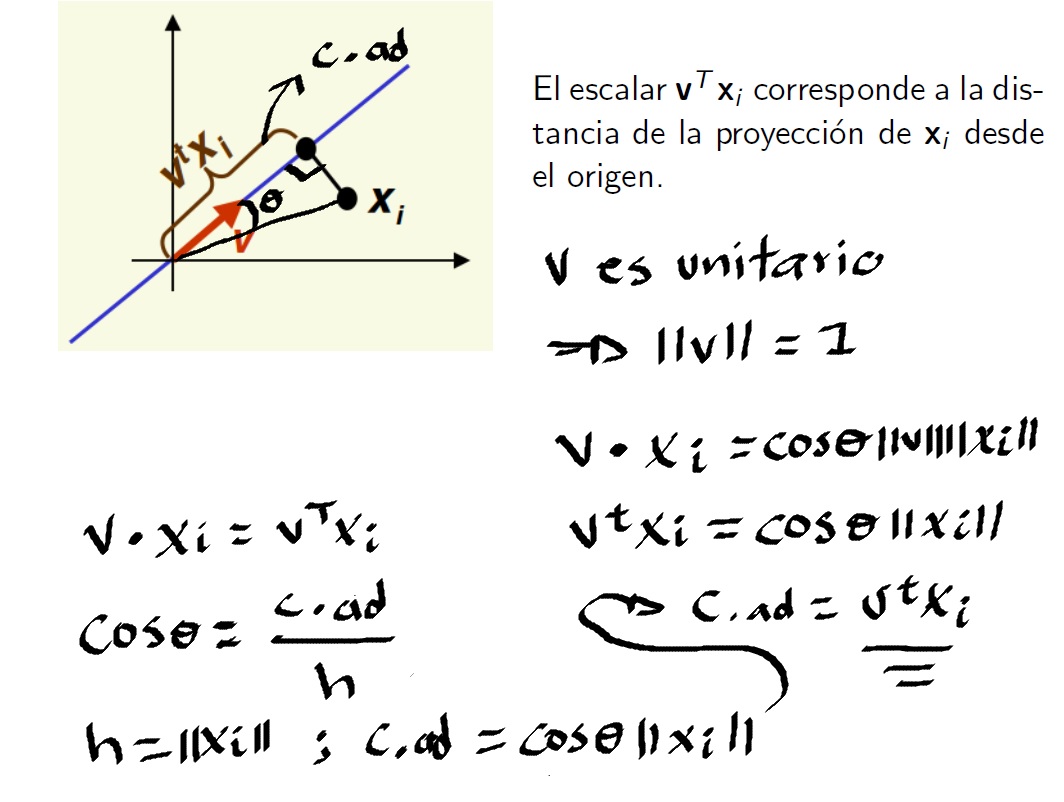 c.ad
vᵗxᵢ
θ
xᵢ
v
El escalar vᵀxᵢ corresponde a la dis-
tancia de la proyección de xᵢ desde
el origen.
v es unitario
⇒ ||v|| = 1
v · xᵢ = cosθ||v||||xᵢ||
vᵗxᵢ = cosθ||xᵢ||
c.ad = vᵗxᵢ
v · xᵢ = vᵀxᵢ
cosθ = c.ad
h
h = ||xᵢ|| ; c.ad = cosθ||xᵢ||